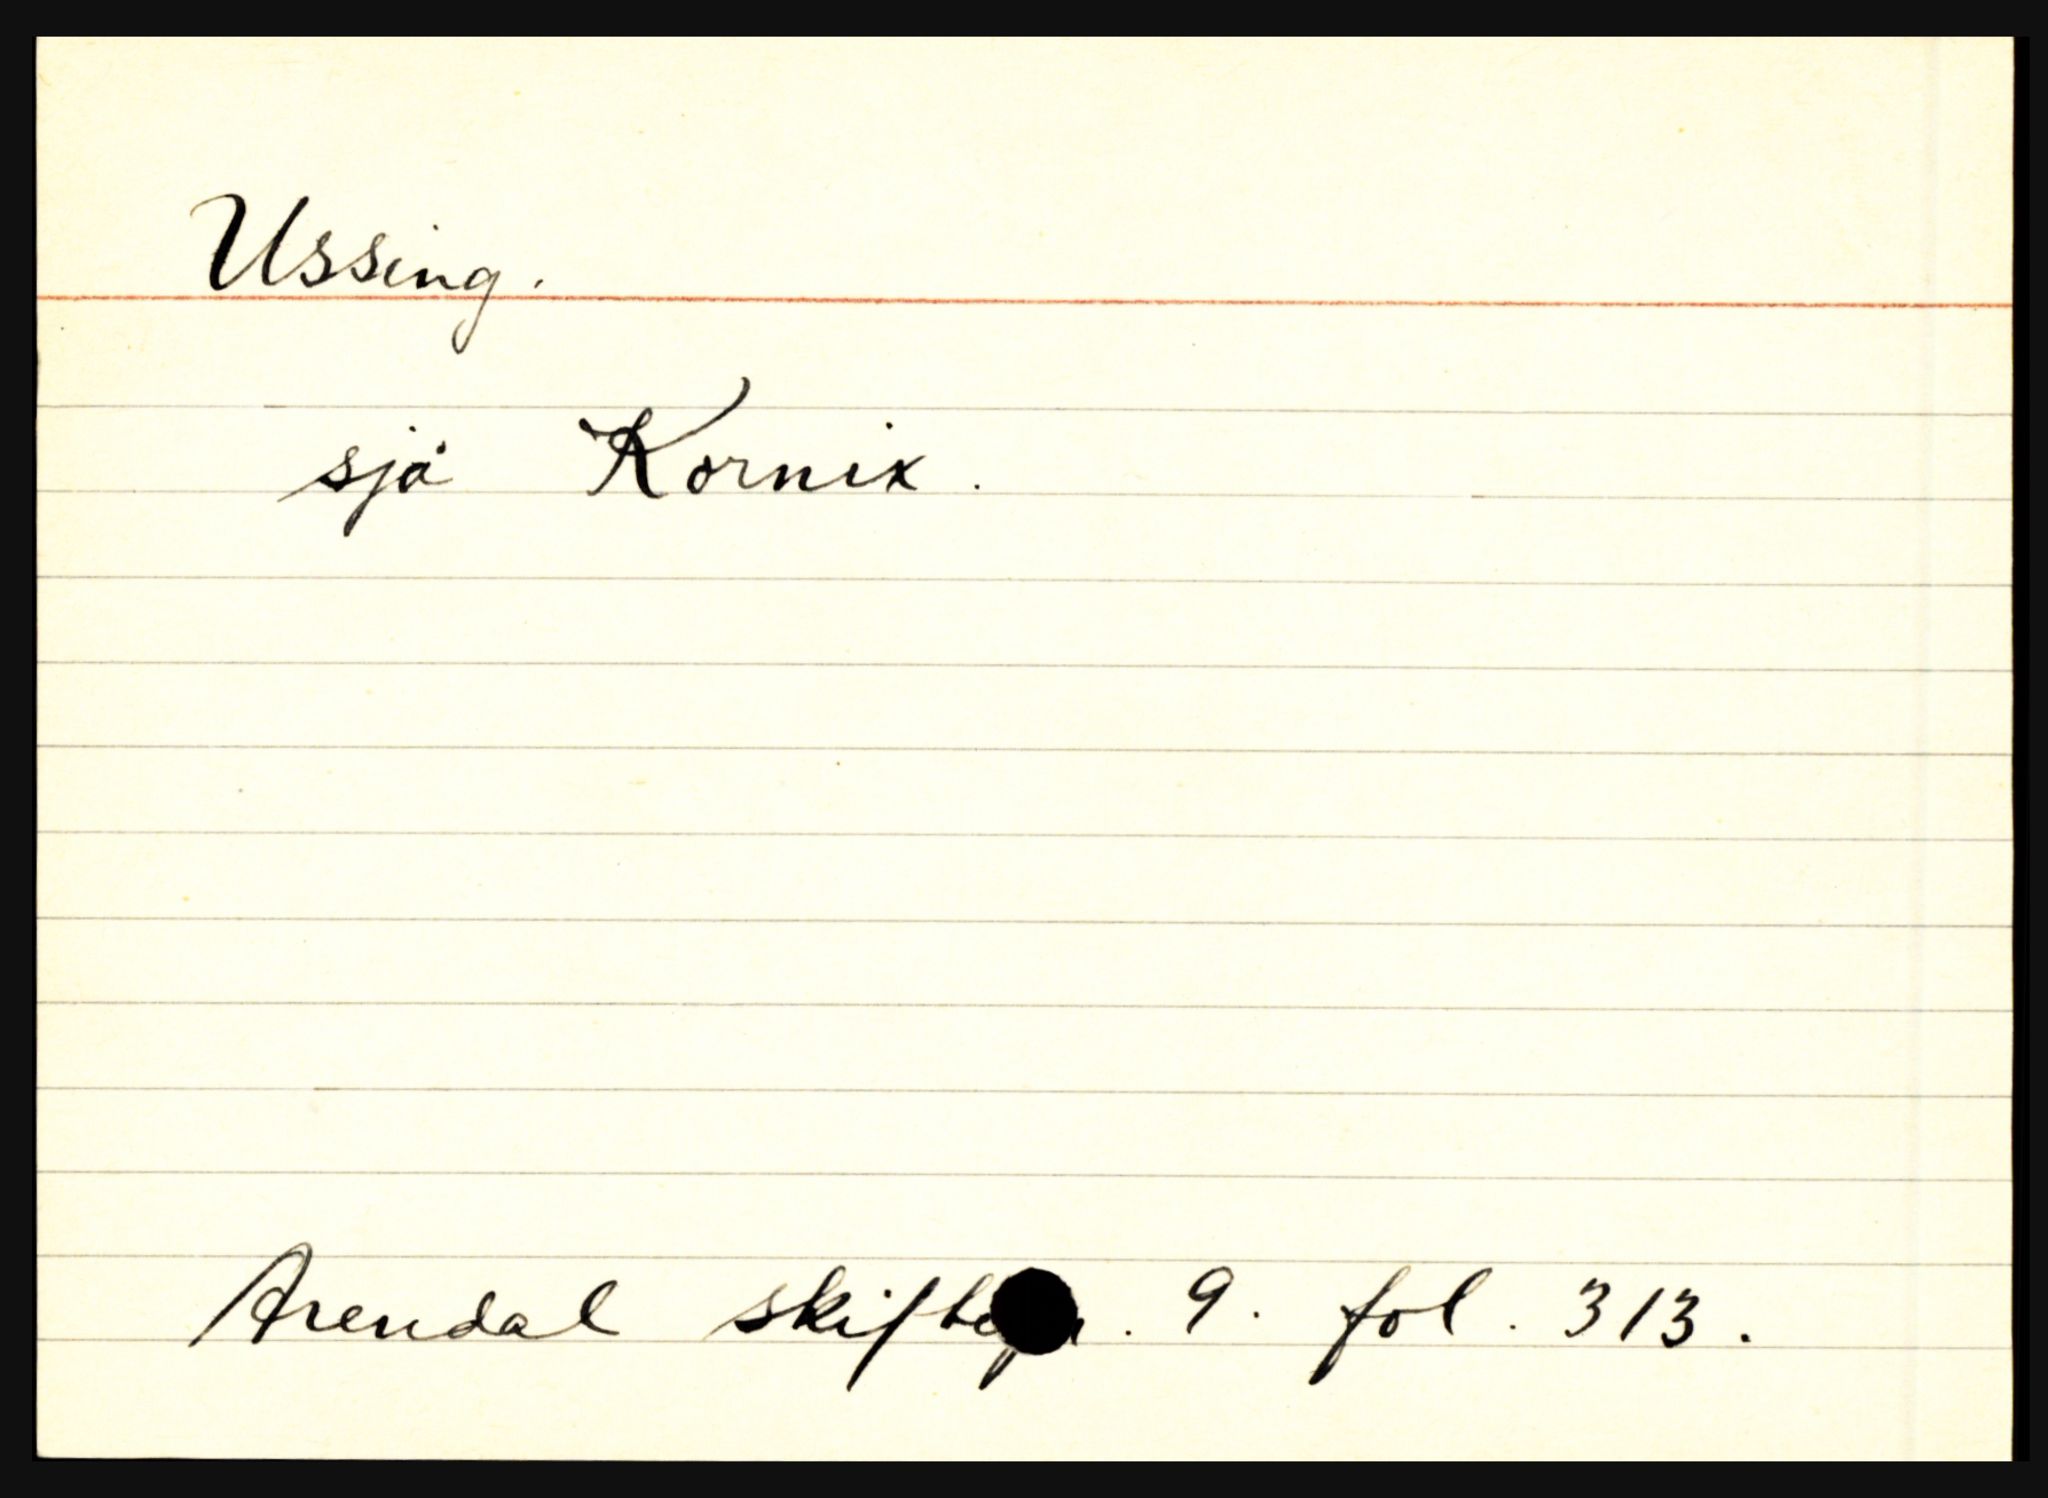 Ussing.
sjå Kornix.
Arendal 9. fol. 313.